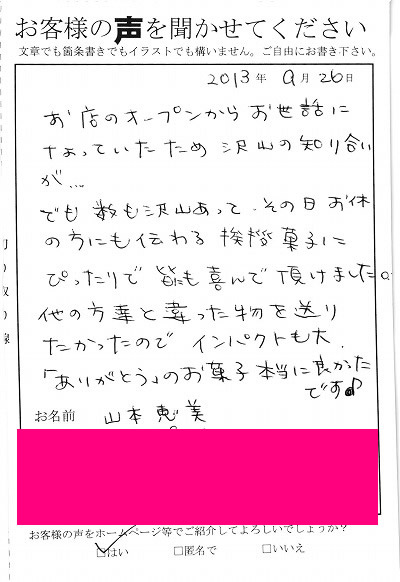 お客様の声を聞かせてください
文章でも箇条書きでもイラストでも構いません。ご自由にお書き下さい。
2013年 9月 26日
お店のオープンからお世話に
なっていたため 沢山の知り合い
が…
でも 数も沢山あって、その日 お休
の方にも伝わる 挨拶 菓子に
ぴったりで 皆も喜んで 頂けました。
他の方華と違った物を送り
たかったので インパクトも大、
「ありがとう」のお菓子本当に良かった
です♪
お名前 山本恵美
お客様の声をホームページ等でご紹介してよろしいでしょうか?
☑はい □匿名で □いいえ
切り取り線